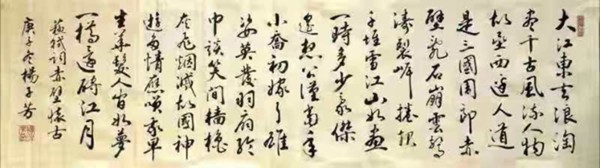 大江東去浪淘
盡千古風流人物
故壘西邊人道
是三國周郎赤
壁亂石崩雲驚
濤裂岸捲起
千堆雪江山如畫
一時多少豪傑
遙想公瑾當年
小喬初嫁了雄
姿英發羽扇綸
巾談笑間檣櫓
灰飛煙滅故國神
遊多情應笑我早
生華髮人間如夢
一樽還酹江月
蘇軾詞赤壁懷古
庚子冬楊子芳